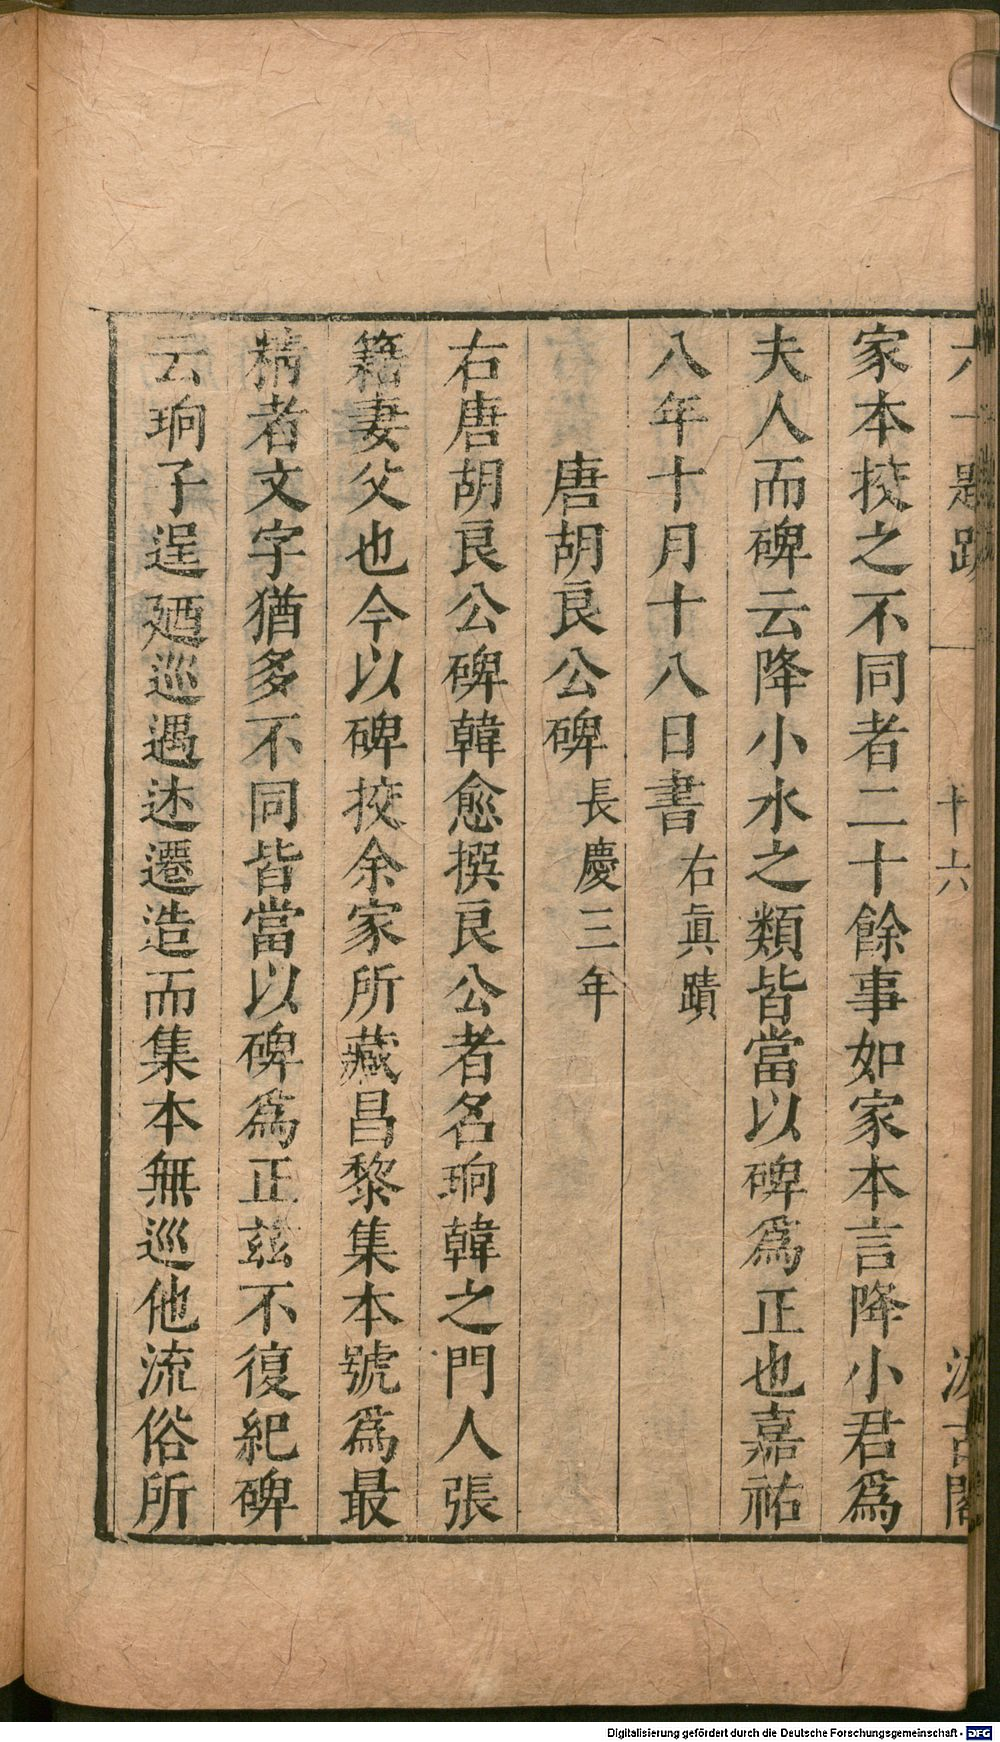 六一題跋 十六 汲古閣
家本挍之不同者二十餘事如家本言降小君爲
夫人而碑云降小水之類皆當以碑爲正也嘉祐
八年十月十八日書 右眞蹟
唐胡良公碑 長慶三年
右唐胡良公碑韓愈撰良公者名珦韓之門人張
籍妻父也今以碑挍余家所藏昌黎集本號爲最
精者文字猶多不同皆當以碑爲正茲不復紀碑
云珦子逞廼巡遇述遷造而集本無巡他流俗所
Digitalisierung gefördert durch die Deutsche Forschungsgemeinschaft - DFG